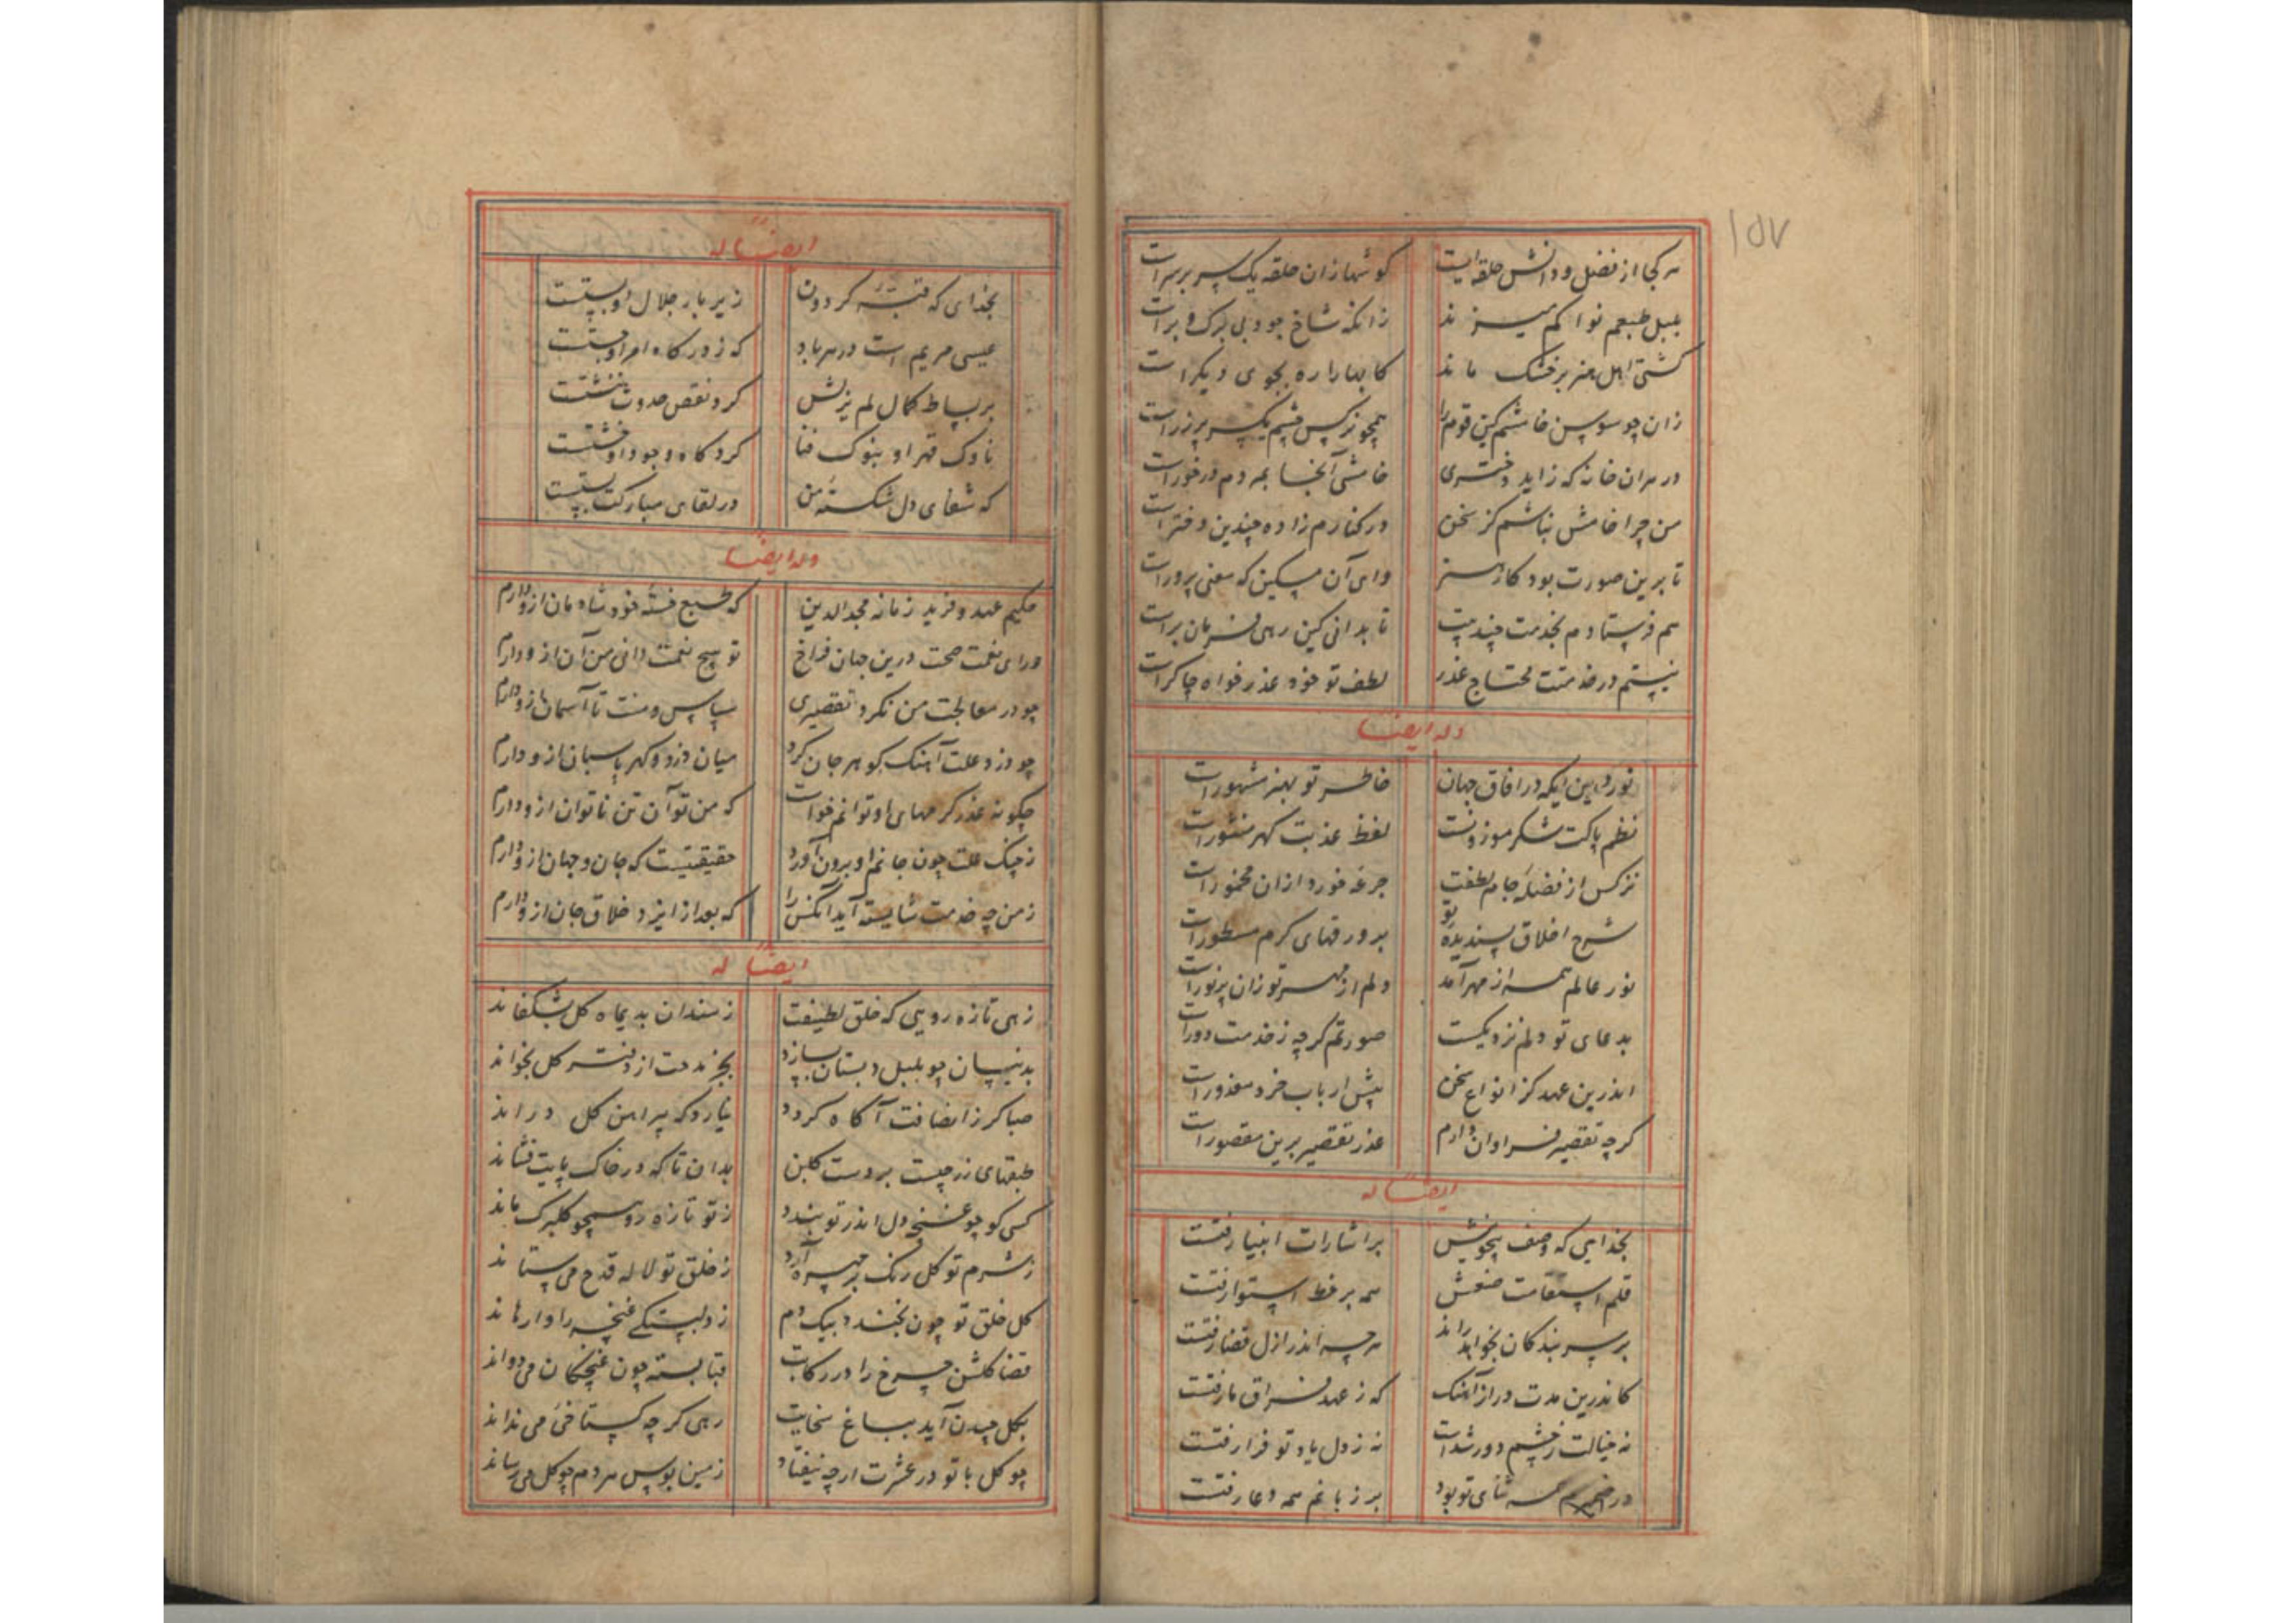 ۱۵۷
هر کجا از فضل و دانش حلقه ایست کوشها زان حلقه یک سر بر سراست
بلبل طبعم نوا کم میزند زانکه شاخ جود بی برک و براست
کشتی اهل هنر بر خشک ماند کابها را ره بجوی دیکراست
زان چو سوسن خامشم کین قوم را همچو نرکس چشم یکسر بر زراست
در هران خانه که زاید دختری خامشی آنجا بمردم درخوراست
من چرا خامش نباشم کز سخن در کنارم زاده چندین دختراست
تا برین صورت بود کار هنر وای آن مسکین که معنی پروراست
هم فرستادم بخدمت چند بیت تا بدانی کین رهی فرمان براست
نیستم در خدمتت محتاج عذر لطف تو خود عذر خواه چاکراست
وله ایضا
نور دین ایکه در افاق جهان خاطر تو بهنر مشهوراست
نظم پاکت شکر موزونست لفظ عذبت کهر منثوراست
نرکس از فضله جام لطفت جرعه خورد ازان مخموراست
شرح اخلاق پسندیده تو بر ورقهای کرم مسطوراست
نور عالم همه از مهر آمد دلم از مهر تو زان پرنوراست
بدعای تو دلم نزدیکست صورتم کرچه ز خدمت دوراست
اندرین عهد کز انواع سخن پیش ارباب خرد معذوراست
کرچه تقصیر فراوان دارم عذر تقصیر برین مقصوراست
ایضا له
بخدایی که وصف بیچونیش بر اشارات انبیا رفتست
قلم استقامت صنعش همه بر خط استوا رفتست
بر سر بندکان بخواهد راند هرچه اندر ازل قضا رفتست
کاندرین مدت دراز آهنک که ز عهد فراق ما رفتست
نه خیالت ز چشم دور شداست نه ز دل یاد تو فرا رفتست
در ضمیرم همه ثنای تو بود بر زبانم همه دعا رفتست
ایضا له
بخدای که قبه کردون زیر بار جلال او پستست
عیسی مریم است در هر باد که ز درکاه امر او جستست
بر بساط کمال لم یزلش کرد نقص حدوث ننشستست
ناوک قهر او بنوک فنا کردکاه وجود او خستست
که شفای دل شکسته من در لقای مبارکت بستست
وله ایضا
حکیم عهد و فرید زمانه مجدالدین که طبع خسته خود شادمان ازو دارم
ورای نعمت صحت درین جهان فراخ تو هیچ نعمت دانی من آن ازو دارم
چو در معالجت من نکرد تقصیری سپاس و منت تا آسمان ازو دارم
چو دزد علت آهنک کوهر جان کرد میان دزد و کهر پاسبان ازو دارم
چکونه عذر کرمهای او توانم خواست که من توان تن ناتوان ازو دارم
ز چنک علت چون جانم او برون آورد حقیقتست که جان و جهان ازو دارم
ز من چه خدمت شایسته آید آنکس را که بعد از ایزد خلاق جان ازو دارم
ایضا له
زهی تازه رویی که خلق لطیفت ز سندان بدیماه کل بشکفاند
بدنیسان چو بلبل دبستان بسازد بجز مدحت از دفتر کل نخواند
صبا کر ز انصافت آکاه کردد نیارد که پیراهن کل دراند
طبقهای زر چیست بر دست کلبن بدان تا که در خاک پایت فشاند
کسی کو چو غنچه دل اندر تو بندد ز تو تازه رو همچو کلبرک ماند
ز شرم تو کل رنک بر چهره آرد ز خلق تو لاله قدح می ستاند
کل خلق تو چون بخندد بیک دم ز دلبستکی غنچه را وارهاند
قضا کلشن چرخ را در رکابت قبا بسته چون غنچکان می دواند
بکل چیدن آید بباغ سخایت رهی کرچه کستاخی می نداند
چو کل با تو در عشرت ارچه نیفتاد زمین بوس هر دم چو کل می رساند